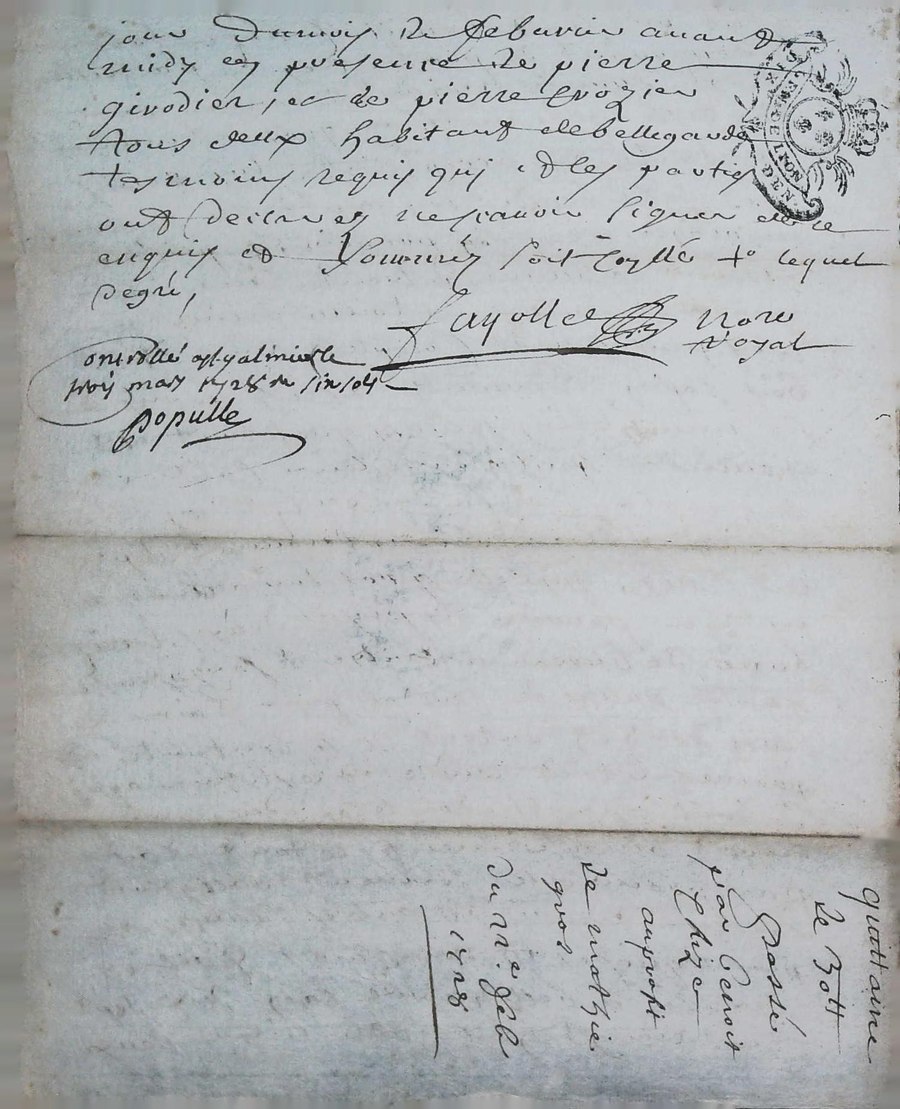 jour du mois de febvrier avant
midy en presence de pierre
girodier, et de pierre Crozier
tous deux habitant de bellegarde
tesmoins requis qui et les parties
ont declarez ne scavoir signer de ce
enquis et soit lequel
degré,
fayolle nore
royal
ontrollé a st galmier le
trois mars 1728 r sin sols
populle
GEN. DE LYON
quittaine
de 30tt
passé
par benoit
Chize
auprofit
de mathie
gros
du 22e feb
1728